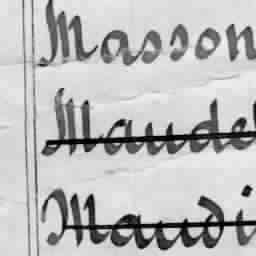 Masson
Maude
Maudi